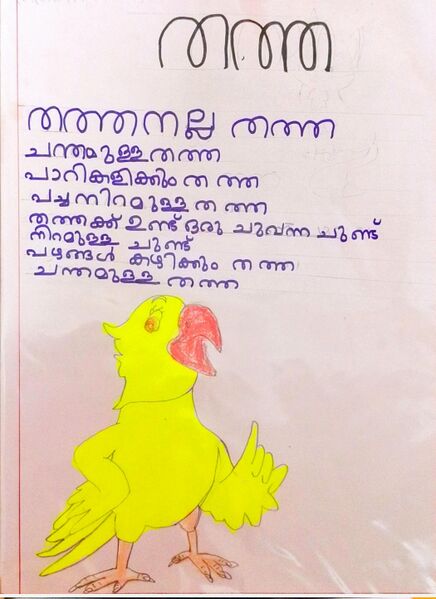 തത്ത
തത്തനല്ല തത്ത
ചന്തമുള്ള തത്ത
പാറികളിക്കും തത്ത
പച്ച നിറമുള്ള തത്ത
തത്തക്ക് ഉണ്ട് ഒരു ചുവന്ന ചുണ്ട്
നിറമുള്ള ചുണ്ട്
പഴങ്ങൾ കഴിക്കും തത്ത
ചന്തമുള്ള തത്ത